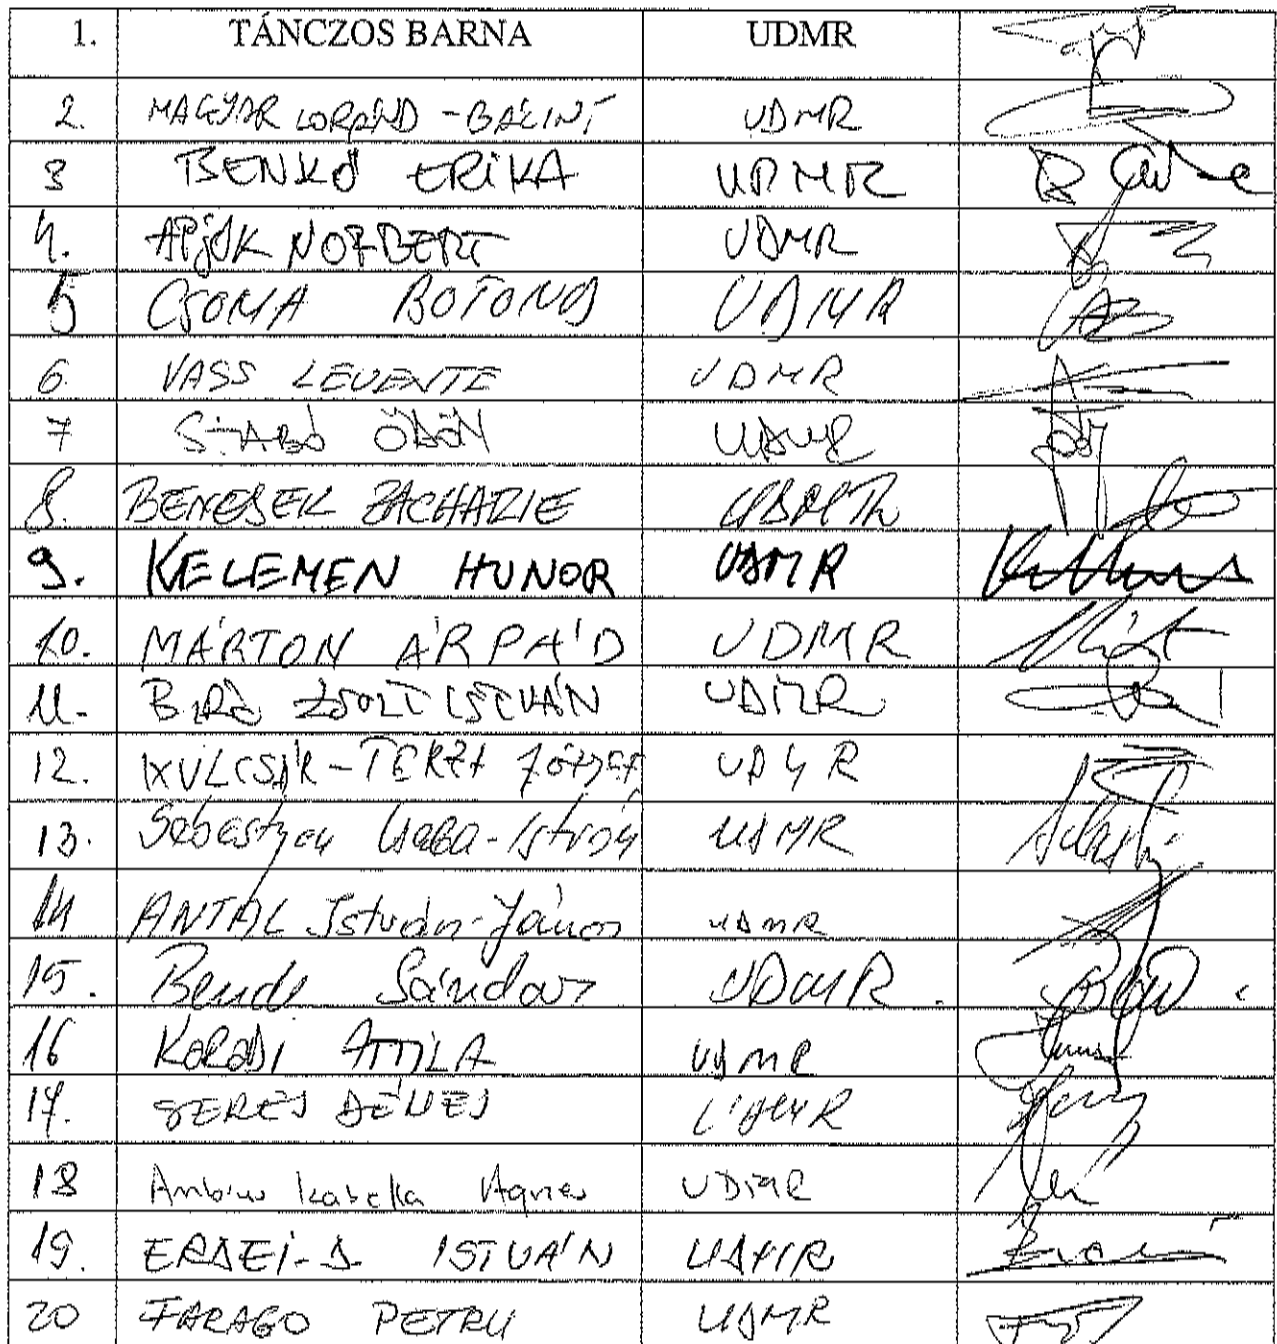 1. TÁNCZOS BARNA UDMR
2. MAGYAR LORÁND - BÁLINT UDMR
3 BENKŐ ERIKA UDMR
4. APJOK NORBERT UDMR
5 CSOMA BOTOND UDMR
6. VASS LEVENTE UDMR
7 SZABÓ ÖDÖN UDMR
8. BENEDEK ZACHARIE UDMR
9. KELEMEN HUNOR UDMR
10. MÁRTON ÁRPÁD UDMR
11. BIRÓ ZSOLT ISTVÁN UDMR
12. KULCSÁR - TERZA JÓZSEF UDMR
13. Sebestyen Csaba - István UDMR
14 ANTAL István - János UDMR
15. Bende Sándor UDMR.
16 KORODI ATTILA UDMR
17. SERES DÉNES UDMR
18 Ambrus Izabella Agnes UDMR
19. ERDEI-D. ISTVÁN UDMR
20 FARAGO PETRU UDMR